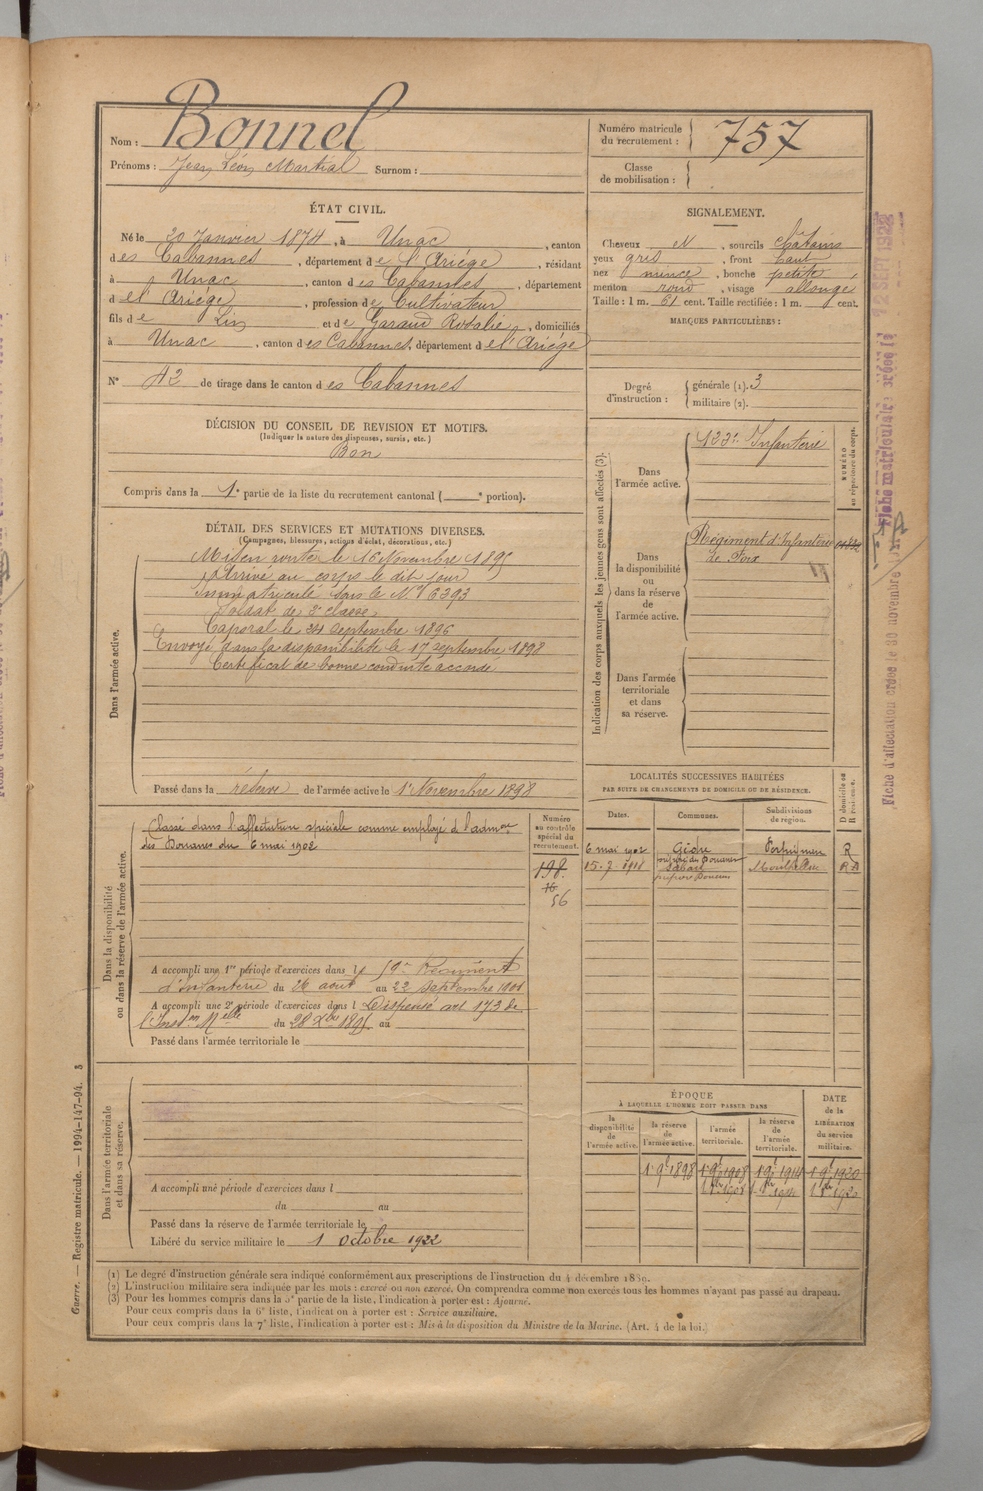 Nom : Bonnel
Prénoms : Jean Léon Martial Surnom :
Numéro matricule du recrutement : 757
Classe de mobilisation :
ÉTAT CIVIL.
Né le 20 Janvier 1874, à Unac, canton
des Cabannes, département de l'Ariége, résidant
à Unac, canton des Cabannes, département
de l'Ariége, profession de Cultivateur
fils de Lin et de Garaud Rosalie, domiciliés
à Unac, canton des Cabannes, département de l'Ariége
N° 42 de tirage dans le canton des Cabannes
SIGNALEMENT.
Cheveux et , sourcils châtains
yeux gris , front haut
nez mince , bouche petite ,
menton rond , visage allongé
Taille : 1 m. 61 cent. Taille rectifiée : 1 m. cent.
MARQUES PARTICULIÈRES :
Degré d'instruction : générale (1). 3
militaire (2).
DÉCISION DU CONSEIL DE REVISION ET MOTIFS.
(Indiquer la nature des dispenses, sursis, etc.)
Bon
Compris dans la 1e partie de la liste du recrutement cantonal ( e portion).
DÉTAIL DES SERVICES ET MUTATIONS DIVERSES.
(Campagnes, blessures, actions d'éclat, décorations, etc.)
Dans l'armée active.
Mis en route le 16 Novembre 1895
Arrivé au corps le dit jour
Immatriculé sous le N° 6393
Soldat de 2e classe
Caporal le 24 Septembre 1896
Envoyé dans la disponibilité le 17 septembre 1898
Certificat de bonne conduite accordé
Passé dans la réserve de l'armée active le 1er Novembre 1898
Indication des corps auxquels les jeunes gens sont affectés (3).
NUMÉRO au répertoire du corps.
Dans l'armée active.
Infanterie
Dans la disponibilité ou dans la réserve de l'armée active.
Régiment d'Infanterie
de Foix
Dans l'armée territoriale et dans sa réserve.
LOCALITÉS SUCCESSIVES HABITÉES
PAR SUITE DE CHANGEMENTS DE DOMICILE OU DE RÉSIDENCE.
Dates. Communes. Subdivisions de région. D domicile ou R résidence.
6 mai 1902 Perpignan R
15. 7. 1908 préposé Douanes Montpellier R D
Dans la disponibilité ou dans la réserve de l'armée active.
Numéro au contrôle spécial du recrutement.
198.
16
56
Classé dans l'affectation spéciale comme employé d l'admon
des Douanes du 6 mai 1902
A accompli une 1re période d'exercices dans l Régiment
d'Infanterie du 26 août au 22 septembre 1901
A accompli une 2e période d'exercices dans l Dispensé art 173 de
l'Inston Melle du 28 Xbre 1895 au
Passé dans l'armée territoriale le
Dans l'armée territoriale et dans sa réserve.
A accompli une période d'exercices dans l
du au
Passé dans la réserve de l'armée territoriale le
Libéré du service militaire le 1 Octobre 1922
ÉPOQUE
À LAQUELLE L'HOMME DOIT PASSER DANS
la disponibilité de l'armée active. la réserve de l'armée active. l'armée territoriale. la réserve de l'armée territoriale. DATE de la LIBÉRATION du service militaire.
1 9e 1898 1 9e 1908 1 9e 1914 1 9e 1920
(1) Le degré d'instruction générale sera indiqué conformément aux prescriptions de l'instruction du 4 décembre 1889.
(2) L'instruction militaire sera indiquée par les mots : exercé ou non exercé. On comprendra comme non exercés tous les hommes n'ayant pas passé au drapeau.
(3) Pour les hommes compris dans la 5e partie de la liste, l'indication à porter est : Ajourné.
Pour ceux compris dans la 6e liste, l'indication à porter est : Service auxiliaire.
Pour ceux compris dans la 7e liste, l'indication à porter est : Mis à la disposition du Ministre de la Marine. (Art. 4 de la loi.)
Guerre. — Registre matricule. — 1994-147-94.
Fiche matriculaire créée le 2 SEPT 1922
Fiche d'affectation créée le 30 novembre